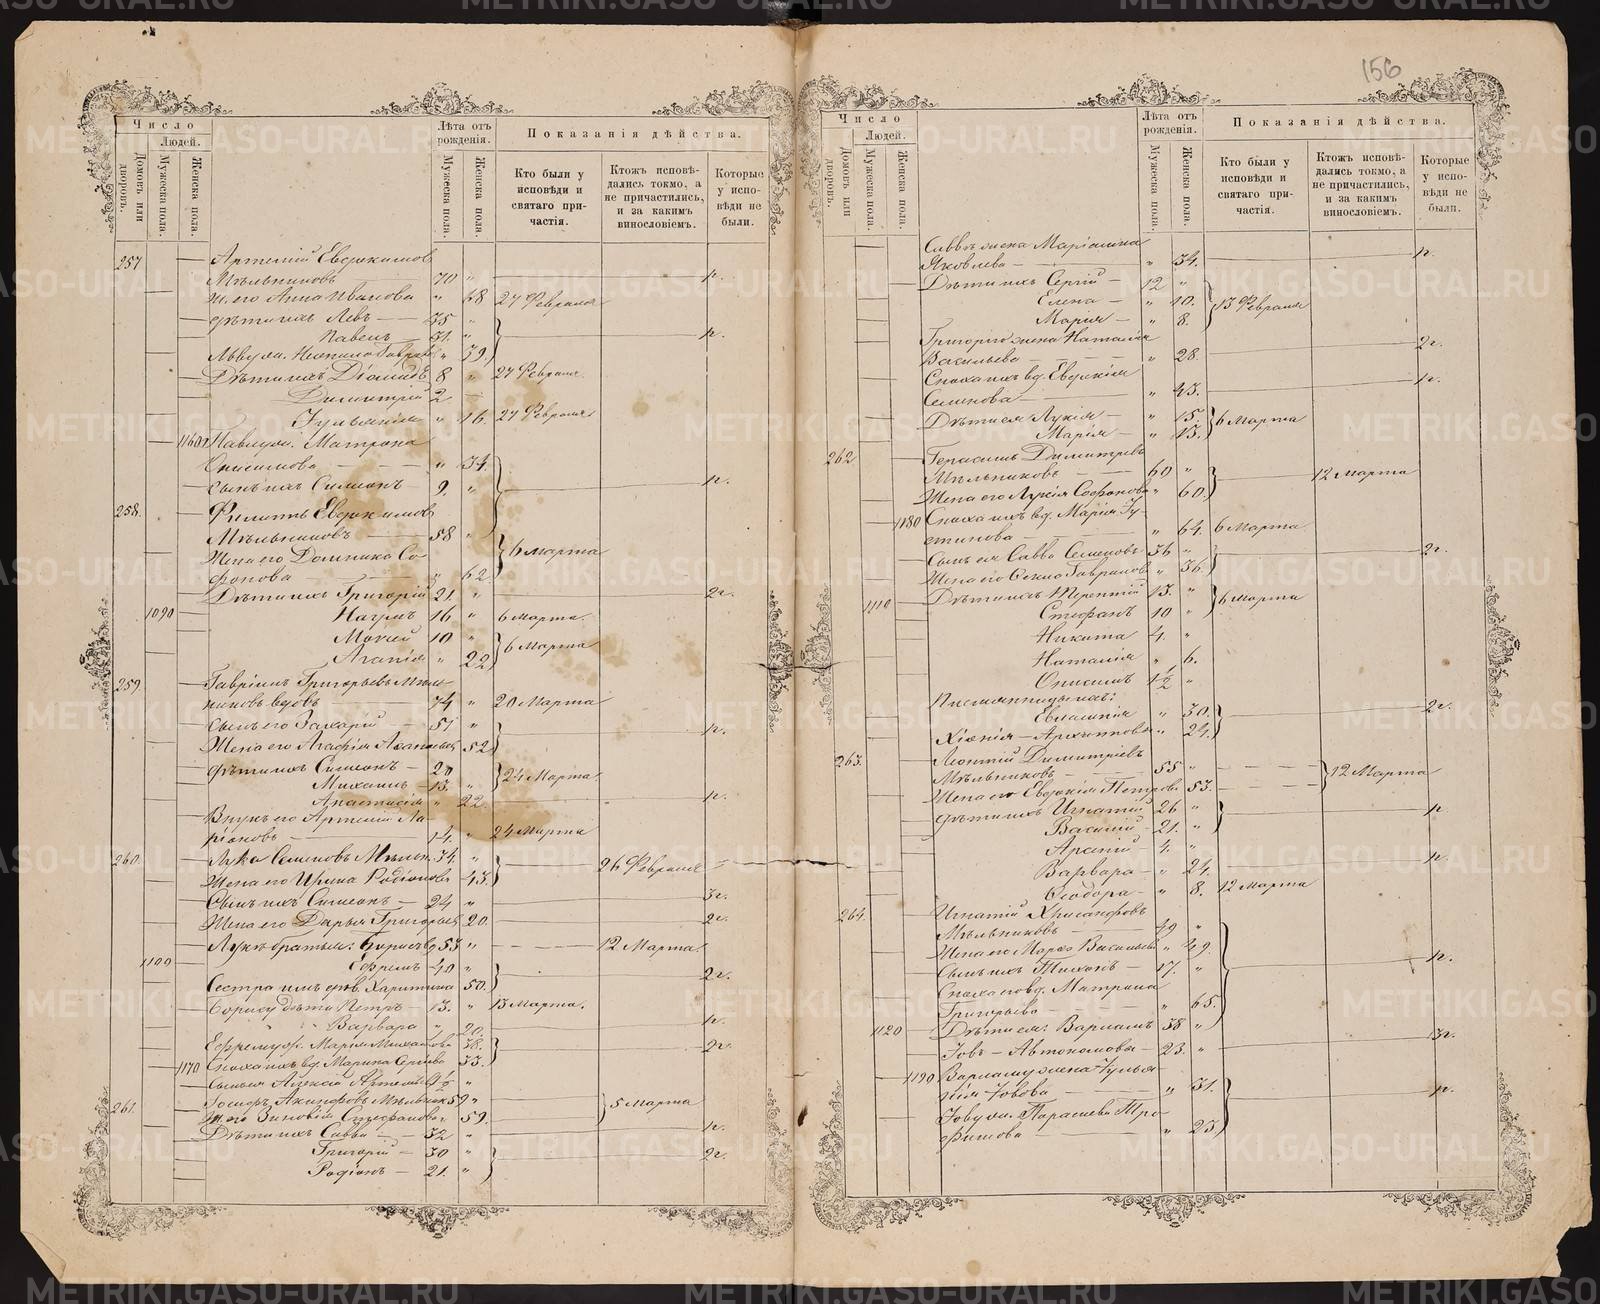 156
Число
Людей.
Домовъ или дворовъ.
Мужеска пола.
Женска пола.
Лѣта отъ рожденія.
Мужеска пола.
Женска пола.
Показанія дѣйства.
Кто были у исповѣди и святаго причастія.
Ктожъ исповѣдались токмо, а не причастились, и за какимъ винословіемъ.
Которые у исповѣди не были.
257 Артемій Евдокимовъ
Мѣльниковъ 70 "
Ж. его Анна Иванова " 68 27 Февраля
Дѣти ихъ Левъ 35 "
Павелъ 31. "
39.
Дѣти ихъ 8 " 27 Февраля.
Димитрій 2
" 16. 27 Февраля
1160 Матрона
Онисимова " 34.
Сынъ ихъ Симеонъ 9. "
258. Филиппъ Евдокимовъ
Мѣльниковъ 58 "
Жена его Домника Со-
фонова " 62. 6 Марта
Дѣти ихъ Григорій 21. " 2г.
1090 Наумъ 16 " 6 Марта.
Моисей 10 "
Агапія " 22 6 Марта
259 Гавріилъ Григорьевъ Мѣль-
никовъ вдовъ 74 " 20 Марта
Сынъ его Захарій 51 "
Жена его Агафія 52
Дѣти ихъ Симеонъ 20 "
Михаилъ 13. " 24 Марта
Анастасія " 22.
Внукъ его Артемій Ла-
ріоновъ 14. " 24 Марта
260. Лука Семеновъ Мѣльн. 34. "
Жена его Ирина Родіонова 43. 26 Февраля
Сынъ ихъ Симеонъ 24 " 3г.
Жена его Дарья Григорьева 20. 2г.
Лукѣ братья: Борисъ 53 " 12 Марта.
1100 Ефремъ 40 "
Сестра имъ Харитина 50. 2г.
Борису дѣти Петръ 13. " 13 Марта.
" Варвара " 20.
Марія 38. 2г.
1170 Сноха ихъ вд. Марина 33.
Алексій "
261. Іосифъ Мѣльник. 59 "
Ж. его Зиновія Стефанова " 59. 5 Марта
Дѣти ихъ Савва 32 "
Григорій 30 "
Родіонъ 21. " 2г.
Число
Людей.
Домовъ или дворовъ.
Мужеска пола.
Женска пола.
Лѣта отъ рожденія.
Мужеска пола.
Женска пола.
Показанія дѣйства.
Кто были у исповѣди и святаго причастія.
Ктожъ исповѣдались токмо, а не причастились, и за какимъ винословіемъ.
Которые у исповѣди не были.
Саввѣ жена Маріамна
Яковлева " 34.
Дѣти ихъ Сергій 12 "
Елена " 10. 13 Февраля
Марія " 8.
Григорію жена Наталія
Васильева " 28. 2г.
Сноха ихъ вд. Евдокія
Семенова " 43.
Дѣти ея Лукія " 15. 6 Марта
Марія " 13.
262 Герасимъ Димитріевъ
Мѣльниковъ 60 " 12 Марта
Жена его Лукія Софонова " 60.
1180 Сноха ихъ вд. Марія Іу-
стинова " 64. 6 Марта
Сынъ ея Савва Семеновъ 36 " 2г.
Жена его Гаврилова " 36.
1110 Дѣти ихъ Терентій 13. "
Стефанъ 10 " 6 Марта
Никита 4. "
Наталія " 6.
Онисимъ 1½ "
Евлампія " 30. 2г.
Ксенія Архиппова " 24.
263. Леонтій Димитріевъ
Мѣльниковъ 55 " 12 Марта
Жена его Евдокія Петрова 53.
Дѣти ихъ Игнатій 26 "
Василій 21. "
Арсеній 4. "
Варвара " 24.
Ѳеодора " 8. 12 Марта
264. Игнатій Хрисанфовъ
Мѣльниковъ 49 "
Жена его Марѳа Васильева " 49.
Сынъ ихъ Тихонъ 17. "
Сноха его вд. Матрона
Григорьева " 65.
1120 Дѣти ея: Варлаамъ 38 "
Іовъ Автономовы 23. " 3г.
1190 Варлааму жена Іулья-
нія Іовова " 31.
Іову ж. Параскева Тро-
фимова " 23.